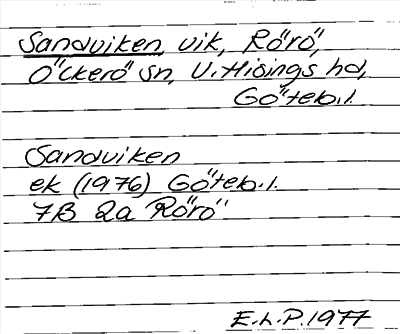 Sandviken, vik, Rörö,
Öckerö sn, V. Hisings hd,
Göteb. l.
Sandviken
ek (1976) Göteb. l.
7B 2a Rörö
E.L.P. 1977